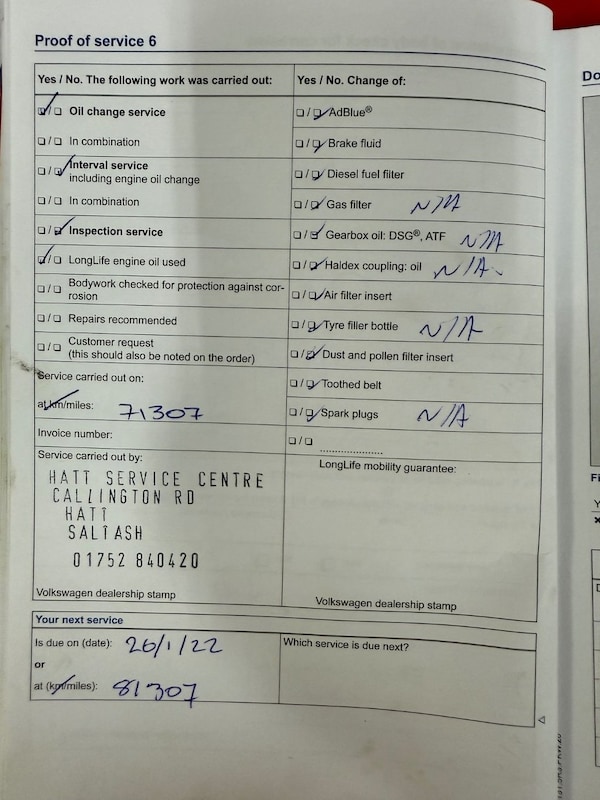 Proof of service 6
Do
Yes / No. The following work was carried out:
Yes / No. Change of:
Oil change service
AdBlue®
In combination
Brake fluid
Interval service
including engine oil change
Diesel fuel filter
In combination
Gas filter N/A
Inspection service
Gearbox oil: DSG®, ATF N/A
LongLife engine oil used
Haldex coupling: oil N/A
Bodywork checked for protection against cor-
rosion
Air filter insert
Repairs recommended
Tyre filler bottle N/A
Customer request
(this should also be noted on the order)
Dust and pollen filter insert
Service carried out on:
Toothed belt
at km/miles: 71307
Spark plugs N/A
Invoice number:
Service carried out by:
LongLife mobility guarantee:
HATT SERVICE CENTRE
CALLINGTON RD
HATT
SALTASH
01752 840420
Volkswagen dealership stamp
Volkswagen dealership stamp
Your next service
Is due on (date): 26/1/22
Which service is due next?
or
at (km/miles): 81307